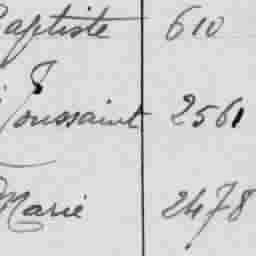 Baptiste 610
Toussaint 2561
Marie 2478